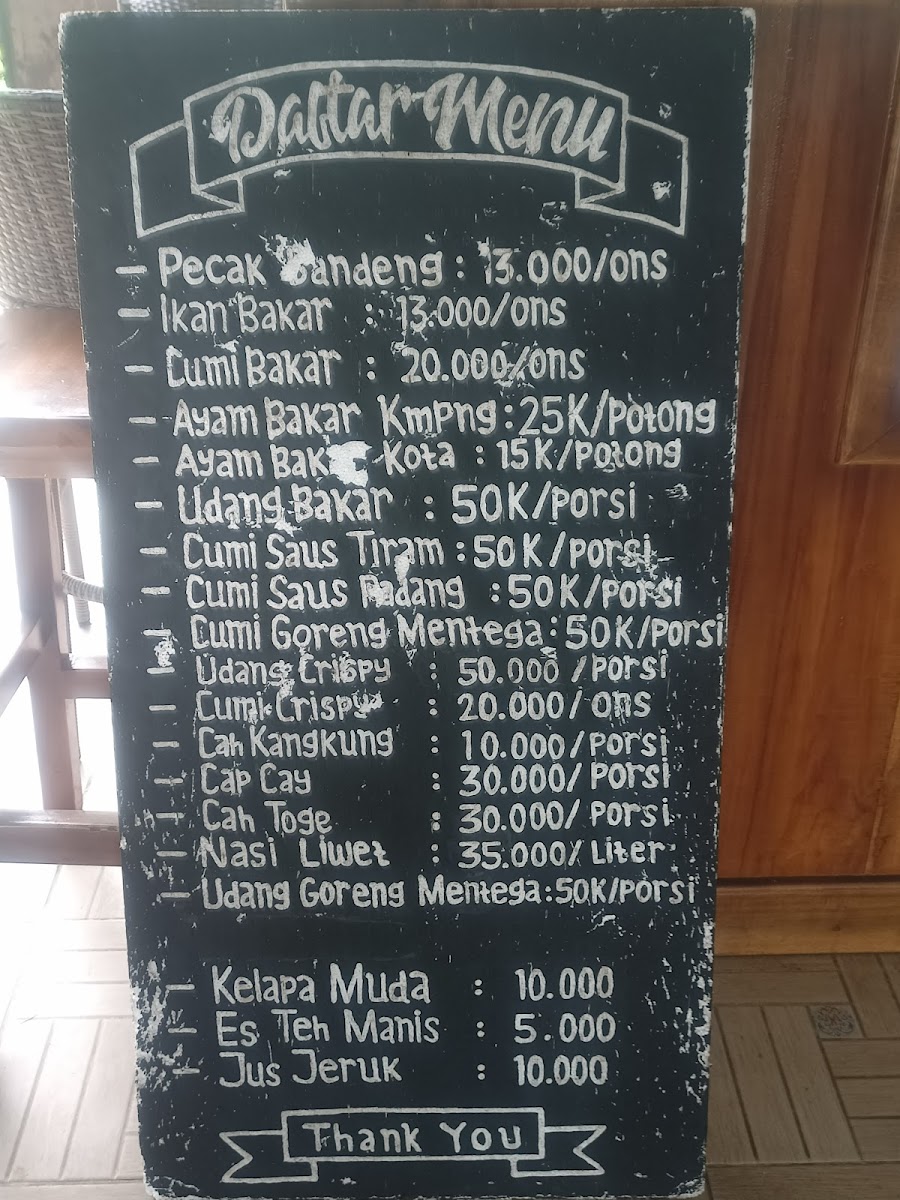 Daftar Menu
- Pecak Bandeng : 13.000/ons
- Ikan Bakar : 13.000/ons
- Cumi Bakar : 20.000/ons
- Ayam Bakar Kmpng : 25K/Potong
- Ayam Bakar Kota : 15K/Potong
- Udang Bakar : 50K/Porsi
- Cumi Saus Tiram : 50K/Porsi
- Cumi Saus Padang : 50K/Porsi
- Cumi Goreng Mentega : 50K/Porsi
- Udang Crispy : 50.000/Porsi
- Cumi Crispy : 20.000/ons
- Cah Kangkung : 10.000/Porsi
- Cap Cay : 30.000/Porsi
- Cah Toge : 30.000/Porsi
- Nasi Liwet : 35.000/Liter
- Udang Goreng Mentega : 50K/Porsi
- Kelapa Muda : 10.000
- Es Teh Manis : 5.000
- Jus Jeruk : 10.000
Thank You